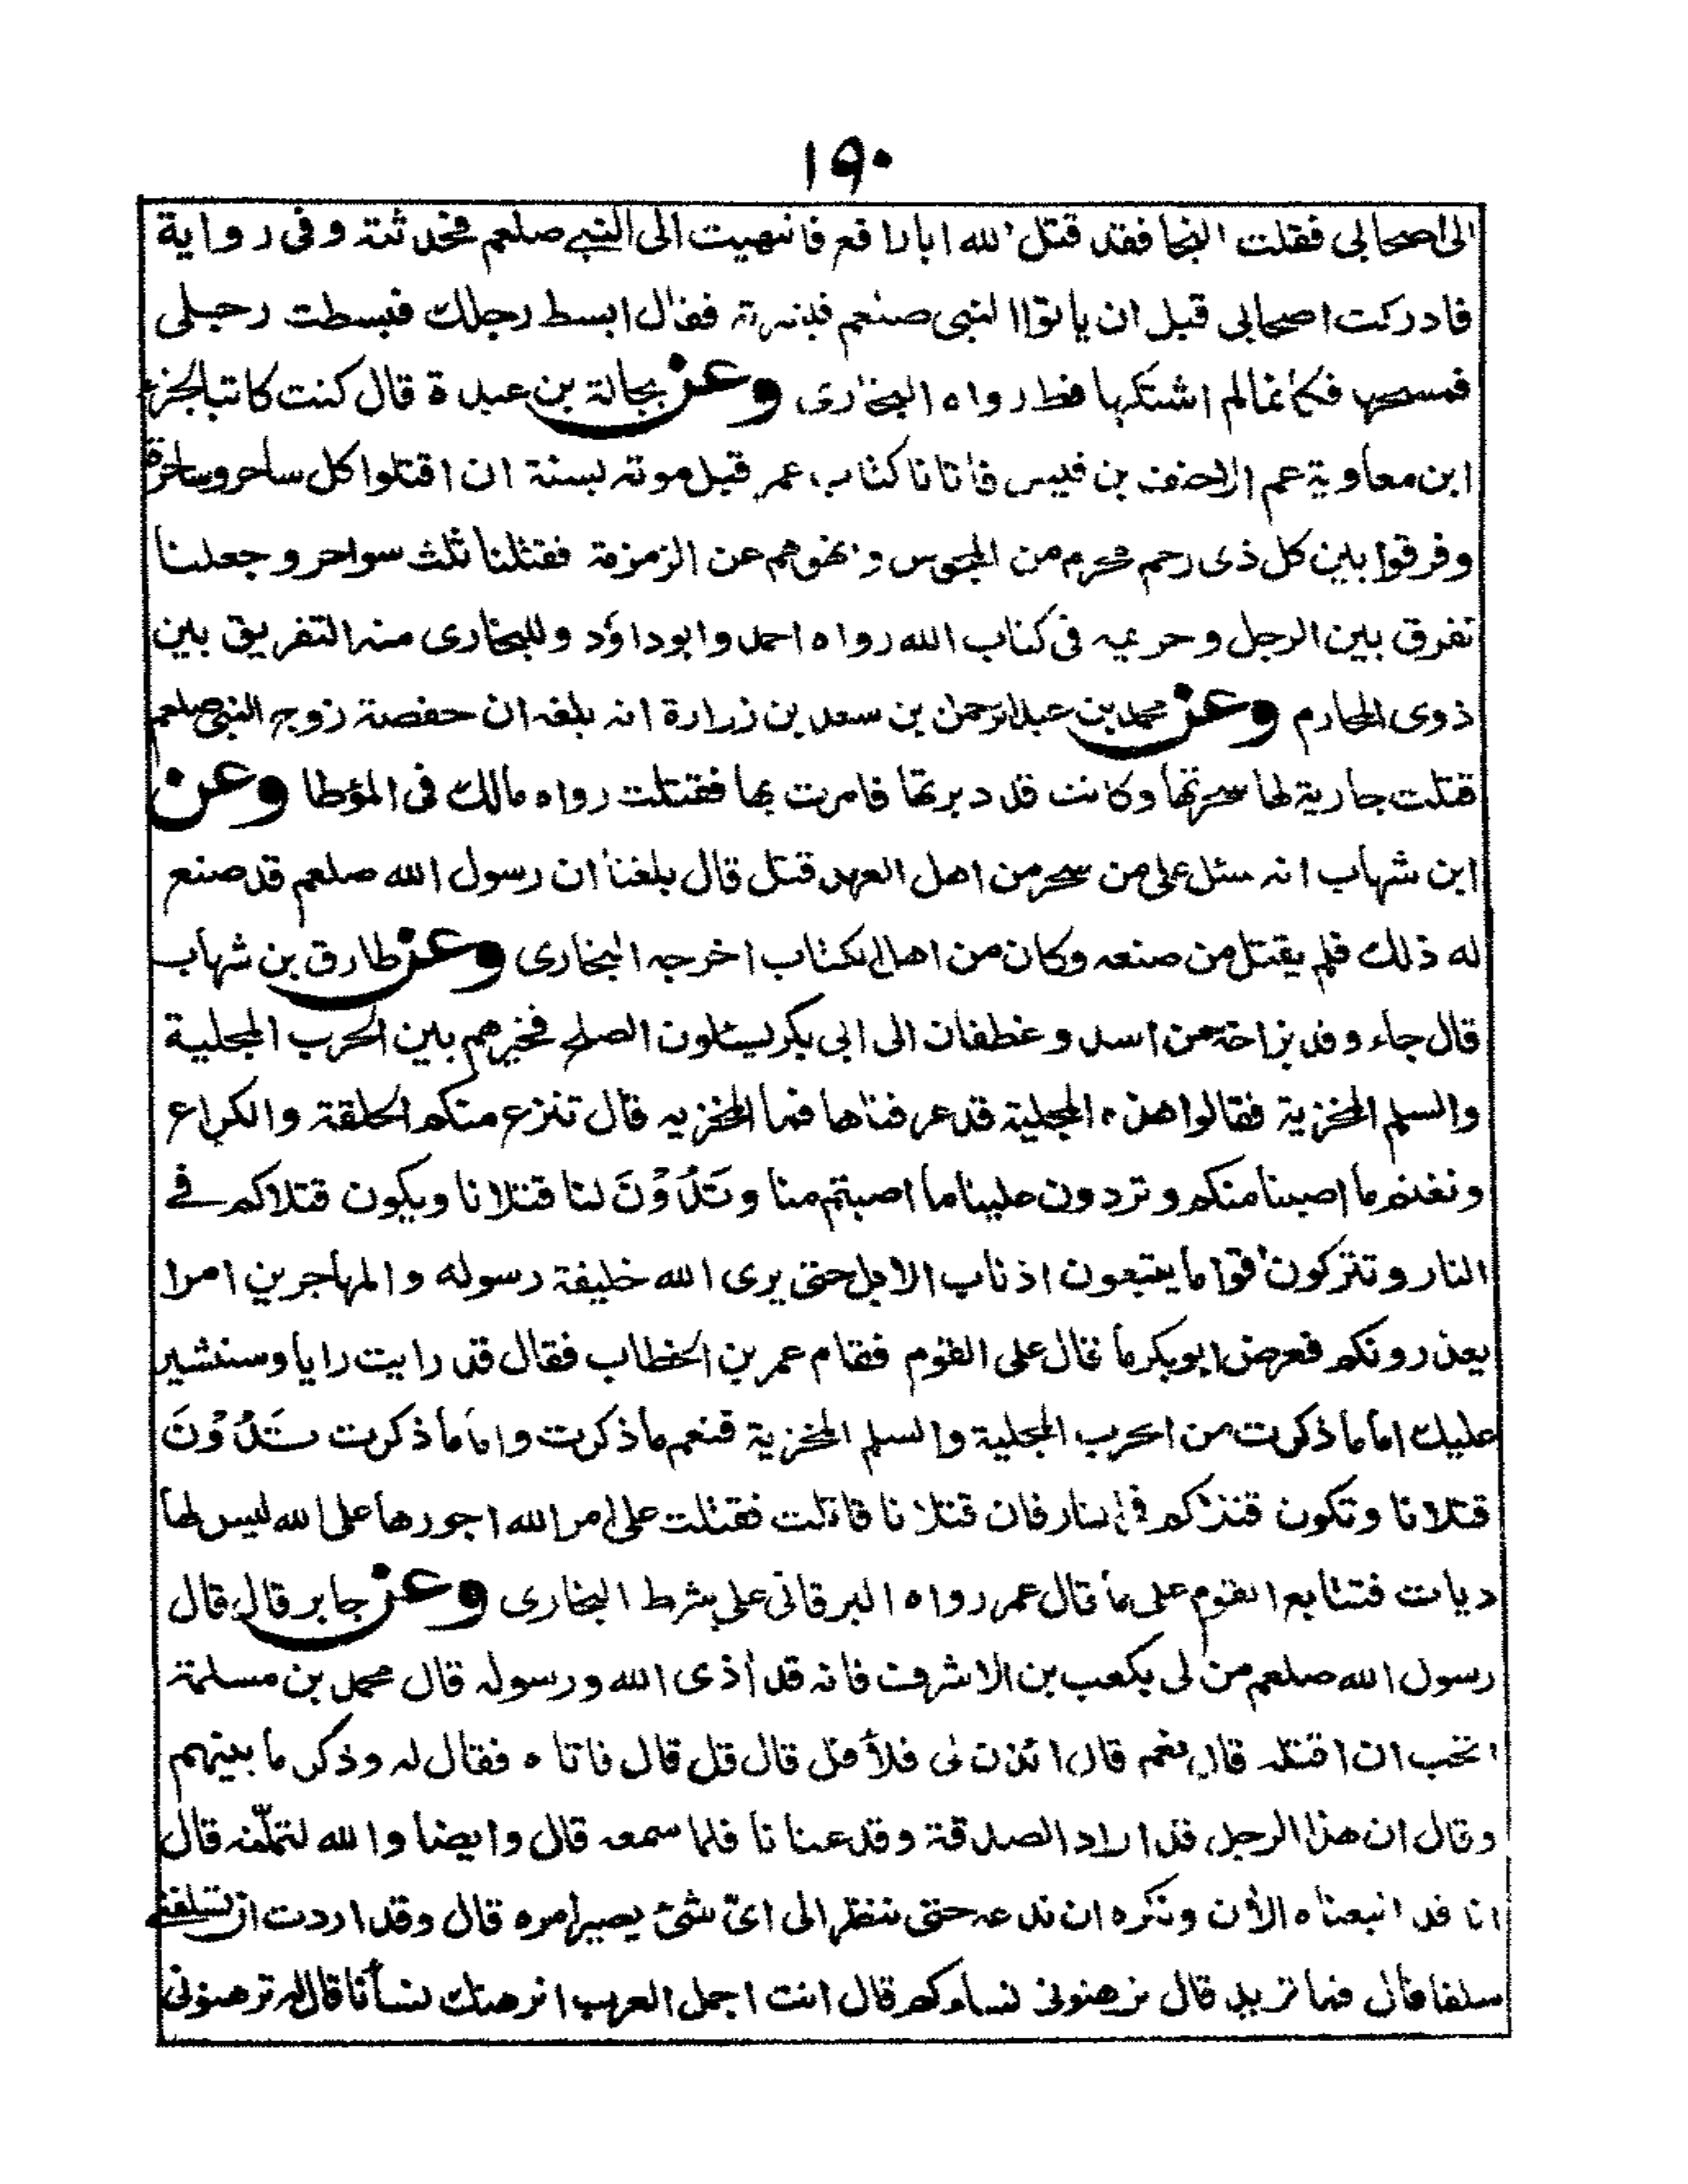 ١٩٠
الى اصحابى فقلت النجا فقد قتل الله ابا رافع فانتهيت الى النبى صلعم فحدثته وفى رواية
فادركت اصحابى قبل ان ياتوا النبى صلعم فبشرته فقال ابسط رجلك فبسطت رجلى
فمسحها فكانما لم اشتكها قط رواه البخارى وعن بجالة بن عبدة قال كنت كاتبا لجزء
ابن معاوية عم الاحنف بن قيس فاتانا كتاب عمر قبل موته بسنة ان اقتلوا كل ساحر وساحرة
وفرقوا بين كل ذى رحم محرم من المجوس وانهوهم عن الزمزمة فقتلنا ثلث سواحر وجعلنا
نفرق بين الرجل وحريمه فى كتاب الله رواه احمد وابوداؤد وللبخارى منه التفريق بين
ذوى المحارم وعن محمد بن عبدالرحمن بن سعد بن زرارة انه بلغه ان حفصة زوج النبى صلعم
قتلت جارية لها سحرتها وكانت قد دبرتها فامرت بها فقتلت رواه مالك فى المؤطا وعن
ابن شهاب انه سئل على من سحر من اهل العهد قتل قال بلغنا ان رسول الله صلعم قد صنع
له ذلك فلم يقتل من صنعه وكان من اهل الكتاب اخرجه البخارى وعن طارق بن شهاب
قال جاء وفد بزاخة من اسد وغطفان الى ابى بكر يسئلون الصلح فخيرهم بين الحرب المجلية
والسلم المخزية فقالوا هذه المجلية قد عرفناها فما المخزيه قال تنزع منكم الحلقة والكراع
ونغنم ما اصبنا منكم وتردون علينا ما اصبتم منا وتَدُوْنَ لنا قتلانا ويكون قتلاكم فے
النار وتتركون اقواما يتبعون اذناب الابل حتى يرى الله خليفة رسوله والمهاجرين امرا
يعذرونكم فعرض ابوبكر ما قال على القوم فقام عمر بن الخطاب فقال قد رايت رايا وسنشير
عليك اما ما ذكرت من الحرب المجلية والسلم المخزية فنعم ما ذكرت واما ما ذكرت تَدُوْنَ
قتلانا وتكون قتلاكم فى النار فان قتلانا قاتلت فقتلت على امر الله اجورها على الله ليس لها
ديات فتتابع القوم على ما قال عمر رواه البرقانى على شرط البخارى وعن جابر قال قال
رسول الله صلعم من لى بكعب بن الاشرف فانه قد اٰذى الله ورسوله قال محمد بن مسلمة
اتحب ان اقتله قال نعم قال ائذن لى فلأقل قال قل قال فاتاه فقال له وذكر ما بينهم
وقال ان هذا الرجل قد اراد الصدقة وقد عنانا فلما سمعه قال وايضا والله لتملّنه قال
انا قد اتبعناه الأن ونكره ان ندعه حتى ننظر الى اىّ شئ يصير امره قال وقد اردت ان تسلفنے
سلفا قال فما تريد قال ترهنونى نساءكم قال انت اجمل العرب انرهنك نسأنا قال له ترهنونى